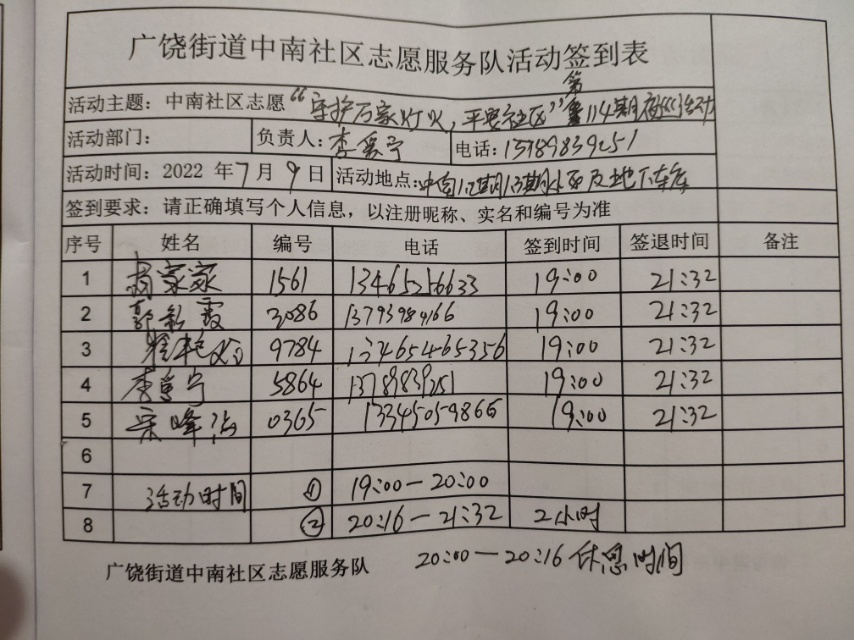 广饶街道中南社区志愿服务队活动签到表
活动主题：中南社区志愿“守护万家灯火，平安社区”第114期夜巡活动
活动部门： 负责人：李 宁 电话：13789839251
活动时间：2022 年7月9日 活动地点：中南1.2期1.3期小区及地下车库
签到要求：请正确填写个人信息，以注册昵称、实名和编号为准
序号 姓名 编号 电话 签到时间 签退时间 备注
1 1561 13465256633 19:00 21:32
2 郭新霞 3086 19:00 21:32
3 9784 19:00 21:32
4 李 宁 5864 13789839251 19:00 21:32
5 宋峰 0365 13345059866 19:00 21:32
6
7 活动时间 ① 19:00—20:00
8 ② 20:16—21:32 2小时
广饶街道中南社区志愿服务队 20:00—20:16 休息时间